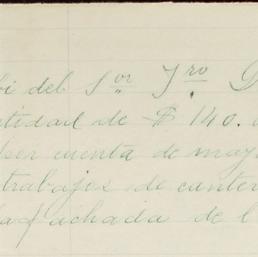 bi del Sor Tro D
ntidad de $ 140.
ser cuenta de may
trabajos de canter
la fachada de l